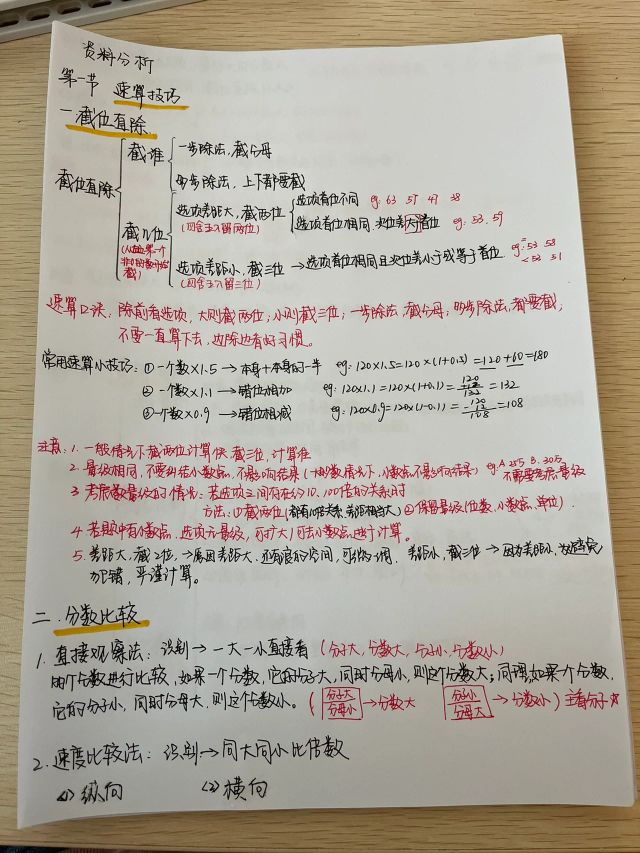 资料分析
第一节 速算技巧
一.截位直除
截位直除
截谁
一步除法,截分母
多步除法,上下都要截
截几位
(从左边第一个非0的数开始截)
选项差距大,截两位
(四舍五入留两位)
选项首位不同 eg: 63 51 49 38
选项首位相同,次位差大于首位 eg: 53.59
选项差距小,截三位→选项首位相同且次位差小于或等于首位 eg: 53 58
(四舍五入留三位)
52 51
速算口诀:除前看选项,大则截两位;小则截三位;一步除法,截分母,多步除法,都要截;
不要一直算下去,边除边看好习惯。
常用速算小技巧:①一个数×1.5→本身+本身的一半 eg: 120×1.5=120×(1+0.5)=120+60=180
②一个数×1.1→错位相加 eg: 120×1.1=120×(1+0.1)= 120 12 132 =132
③一个数×0.9→错位相减 eg: 120×0.9=120×(1-0.1)= 120 12 108 =108
注意:1.一般情况下截两位计算快,截三位,计算准
2.量级相同,不要纠结小数点,不影响结果(大多数情况下,小数点不影响结果) eg.A.255 B.305 不需要考虑量级
3.考虑数量级的情况:若选项之间存在约10、100倍的关系时
方法:①截两位(都有10倍关系,差距相当大)②保留量级(位数,小数点,单位)
4.若题中有小数点,选项无量级,可扩大/可去小数点进行计算。
5.差距大,截2位→原因差距大,还有浪的空间,可微调,差距小,截三位→因为差距小,
易错,严谨计算。
二.分数比较
1.直接观察法:识别→一大一小直接看(分子大,分数大,分子小,分数小)
两个分数进行比较,如果一个分数,它的分子大,同时分母小,则这个分数大;同理,如果一个分数,
它的分子小,同时分母大,则这个分数小。( 分子大 分母小 →分数大 分子小 分母大 →分数小)主看分子
2.速度比较法:识别→同大同小比倍数
(1)纵向 (2)横向